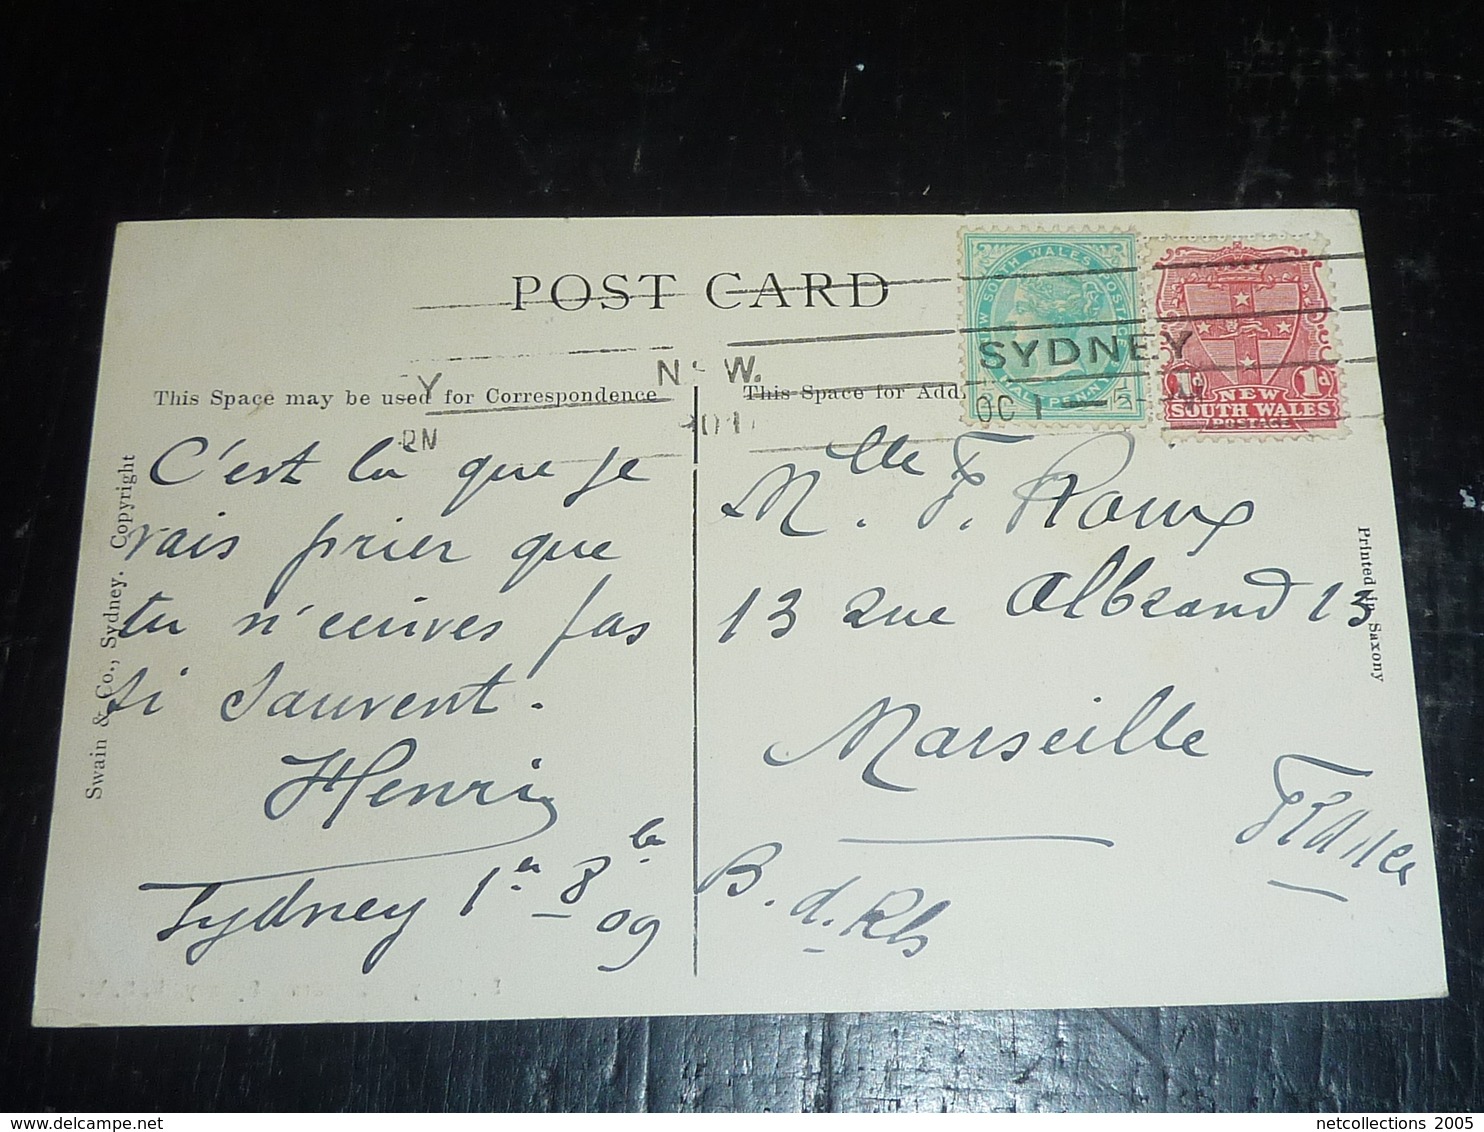 POST CARD
This Space may be used for Correspondence
This Space for Add
NEW SOUTH WALES POSTAGE
HALF PENNY
1/2
SYDNEY
OC 1
N.S.W.
1d 1d
NEW
SOUTH WALES
POSTAGE
C'est la que je
vais prier que
tu n'ecrives pas
si sauvent.
Henri
Sydney 1er 8bre 09
Mlle. F. Roux
13 rue Albrand 13
Marseille
France
B. d. Rh
Swain & Co., Sydney. Copyright
Printed in Saxony
netcollections 2005